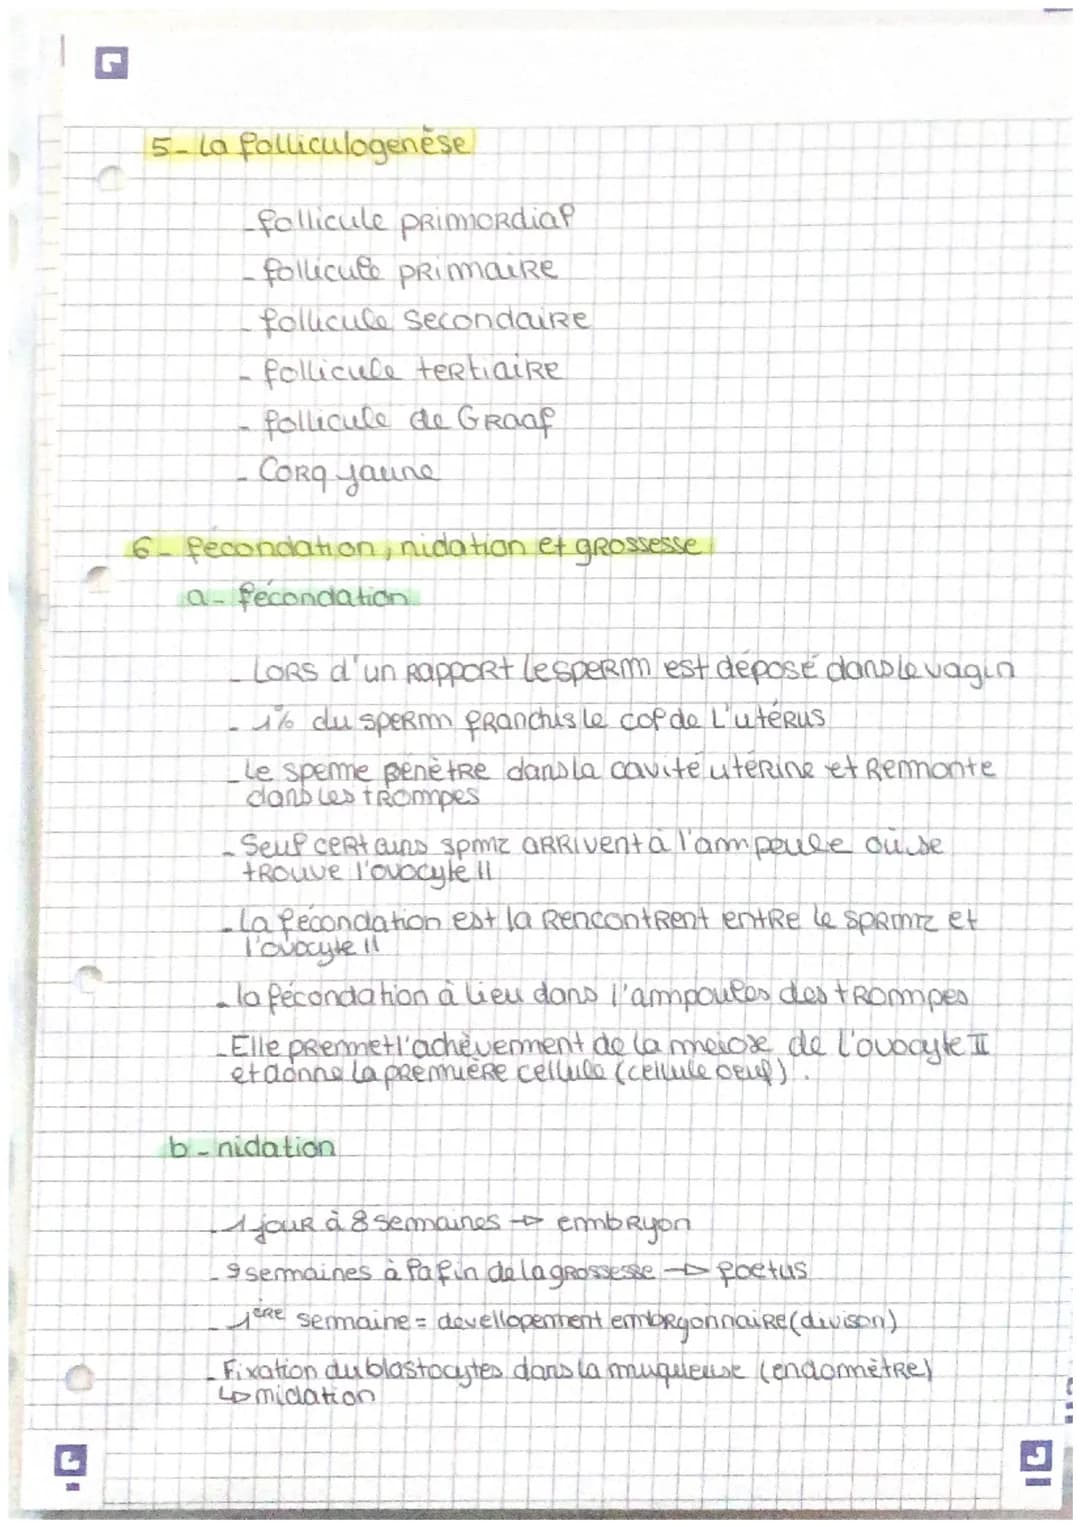 5- la folliculogenèse
- follicule primordial
- follicule primaire
- follicule secondaire
- follicule tertiaire
- follicule de Graaf
- Corq jaune
6- fécondation, nidation et grossesse
a- fécondation
- Lors d'un rapport le sperm est déposé dans le vagin
- 1% du sperm franchis le col de l'utérus
- Le sperme pénètre dans la cavité utérine et remonte
dans les trompes
- Seul certains spmz arrivent à l'ampoule où se
trouve l'ovocyte II
- la fécondation est la rencontrent entre le sprmz et
l'ovocyte II
- la fécondation à lieu dans l'ampoules des trompes
- Elle premet l'achèvement de la meiose de l'ovocyte II
et donne la première cellule (cellule oeuf).
b- nidation
- 1 jour à 8 semaines → embryon
- 9 semaines à la fin de la grossesse → foetus
- 1ère semaine = devellopement embryonnaire (divison)
- Fixation du blastocytes dans la muqueuse (endomètre)
↳ nidation